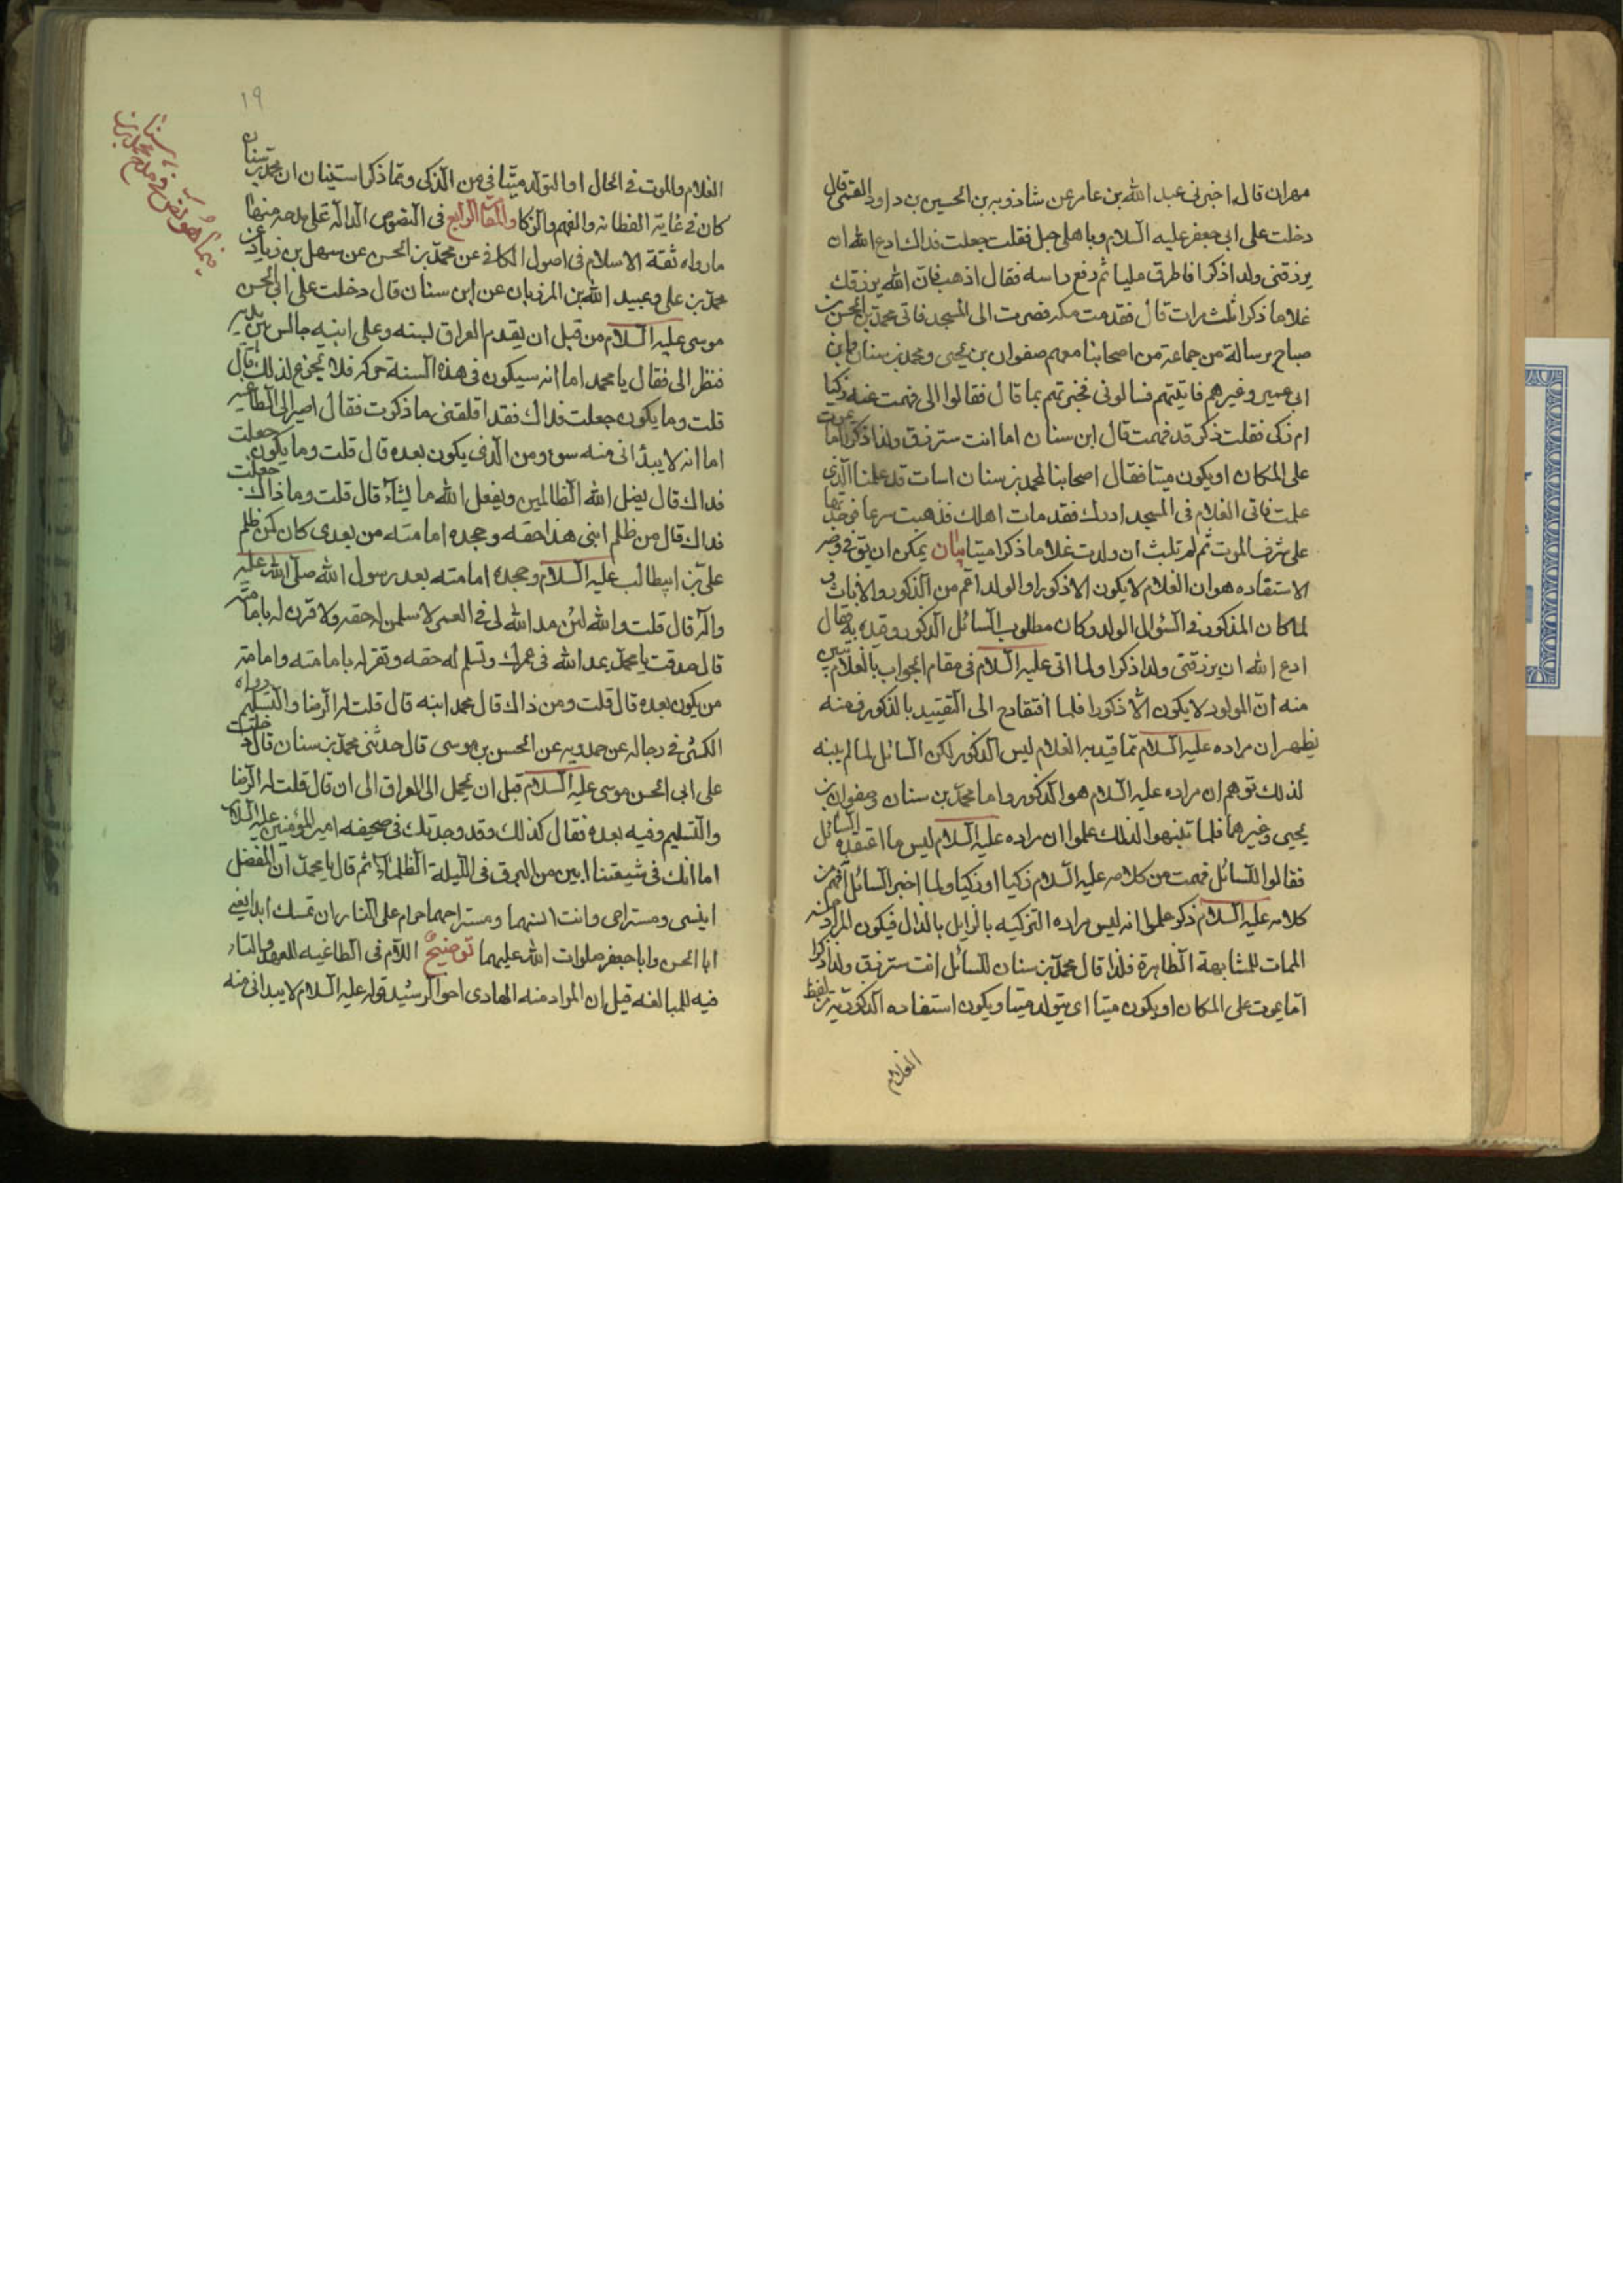 مهران قال اخبرني عبد الله بن عامر عن شاذويه بن الحسين بن داود القمي قال
دخلت على ابي جعفر عليه السلام وباهلي حبل فقلت جعلت فداك ادع الله ان
يرزقني ولدا ذكرا فاطرق مليا ثم رفع راسه فقال اذهب فان الله يرزقك
غلاما ذكرا ثلث مرات قال فقدمت مكه فصرت الى المسجد فاتى محمد بن الحسن بن
صباح برسالة من جماعة من اصحابنا معهم صفوان بن يحيى ومحمد بن سنان وابن
ابي عمير وغيرهم فاتيتهم فسالوني فخبرتهم بما قال فقالوا الى فهمت عنه زكيا
ام ذكى فقلت ذكر قد فهمت قال ابن سنان اما انت سترزق ولدا ذكرا اما يموت
على المكان او يكون ميتا فقال اصحابنا لمحمد بن سنان اسات قد علمنا الذي
علمت فاتى الغلام في المسجد ادرك فقد مات اهلك فذهبت سرعا فوجدتها
على شرف الموت ثم لم تلبث ان ولدت غلاما ذكرا ميتا بيان يمكن ان يق في وجه
الاستفاده هو ان الغلام لا يكون الا ذكورا والولد اعم من الذكور والاناث و
لما كان المذكور في السؤال الولد وكان مطلوب السائل الذكور وقيده به فقال
ادع الله ان يرزقني ولدا ذكرا ولما اتى عليه السلام في مقام الجواب بالغلام تبين
منه ان المولود لا يكون الا ذكورا فلما افتقادح الى التقييد بالذكور فمنه
يظهر ان مراده عليه السلام مما قيد به الغلام ليس الذكور لكن السائل لما لم يبنه
لذلك توهم ان مراده عليه السلام هو الذكور واما محمد بن سنان وصفوان بن
يحيى وغيرهما فلما تنبهوا لذلك علموا ان مراده عليه السلام ليس ما اعتقده السائل
فقالوا للسائل فهمت من كلامه عليه السلام زكيا او ذكيا ولما اخبر السائل افهم من
كلامه عليه السلام ذكر علموا انه ليس مراده التزكيه بالزا بل بالذال فيكون المراد منه
الممات للمشابهة الظاهرة فلذا قال محمد بن سنان للسائل انت سترزق ولدا ذكرا
اما يموت على المكان او يكون ميتا اي يتولد ميتا ويكون استفاده الذكورية من لفظ
الغلام
١٩
الغلام والموت في الحال او التولد ميتا في من الذكى ومما ذكرا ستبان ان محمد بن سنان
كان في غاية الفطانه والفهم والذكا والمقام الرابع في النصوص الدالة على مدحه منها
ما رواه ثقة الاسلام في اصول الكافي عن محمد بن الحسن عن سهل بن زياد عن
محمد بن علي وعبيد الله بن المرزبان عن ابن سنان قال دخلت على ابي الحسن
موسى عليه السلام من قبل ان يقدم العراق لسنه وعلى ابنيه جالس بين يديه
فنظر الي فقال يا محمد اما انه سيكون في هذه السنة حركه فلا تجزع لذلك قال
قلت وما يكون جعلت فداك فقد اقلقني ما ذكرت فقال اصير الى الطاغيه
اما انه لا يبدأني منه سوء ومن الذي يكون بعده قال قلت وما يكون جعلت
فداك قال يضل الله الظالمين ويفعل الله ما يشآء قال قلت وما ذاك جعلت
فداك قال من ظلم ابني هذا حقه وجحده امامته من بعدي كان كمن ظلم
علي بن ابيطالب عليه السلام وجحده امامته بعد رسول الله صلى الله عليه
وآله قال قلت والله لئن مد الله لي في العمر لاسلمن له حقه ولاقرن له بامامته
قال صدقت يا محمد يمد الله في عمرك وتسلم له حقه وتقر له بامامته وامامة
من يكون بعده قال قلت ومن ذاك قال محمد ابنه قال قلت له الرضا والتسليم رواه
الكشي في رجاله عن حمدويه عن الحسن بن موسى قال حدثني محمد بن سنان قال دخلت
على ابي الحسن موسى عليه السلام قبل ان يحمل الى العراق الى ان قال قلت له الرضا
والتسليم وفيه بعده فقال كذلك وقد وجدتك في صحيفه امير المؤمنين عليه السلام
اما انك في شيعتنا ابين من البرق في الليلة الظلمآء ثم قال يا محمد ان المفضل
انيسي ومستراحي وانت انسهما ومستراحهما حرام على النار ان تمسك ابدا يعني
ابا الحسن وابا جعفر صلوات الله عليهما توضيح اللام في الطاغيه للعهد والتاء
فيه للمبالغه قيل ان المراد منه الهادي اخو الرشيد قوله عليه السلام لا يبداني منه
فيما هو نص في مدح محمد بن سنان